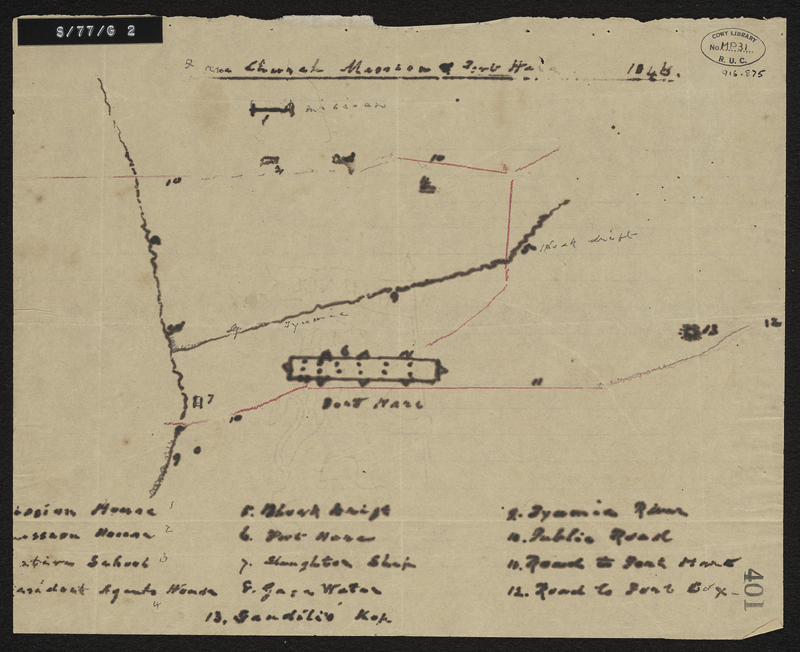 S/77/G 2
CORY LIBRARY
No. MP31
R. U. C.
916.875
Church Mission & Fort Hare 1846.
mission
1
2
10
10
Block drift
9
Tyumie
6
13
12
7
11
Fort Hare
10
9
ission House 1
ission House 2
ative School 3
esident Agents House 4
5. Block Drift
6. Fort Hare
7. Slaughter Shop
8. Gaga Water
9. Tyumie River
10. Public Road
11. Road to Fort
12. Road to Fort Cox
13. Sandili's Kop
401